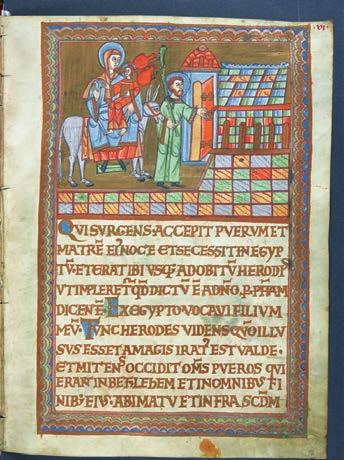 ·VI·
QVI SVRGENS·ACCEPIT PVERVM ET
MATRĒ EI᾿ NOCTE ET SECESSIT IN EGYP
TŪ·ET ERAT IBI VSQ᾿ AD OBITŪ HERODIS
VT IMPLERET᾿ QD̄ DICTV̄ Ē A DN̄O·P PPHAM
DICENTĒ·EX EGYPTO VOCAVI FILIVM
MEV̄·TVNC HERODES VIDENS QVO ILLV
SVS ESSET A MAGIS IRAT᾿ EST VALDE·
ET MITENS OCCIDIT OM̄S PVEROS QVI
ERANT IN BETHLEHEM ET IN OMNIBVS FI
NIB᾿ EIVS·A BIMATV ET INFRA SCDM